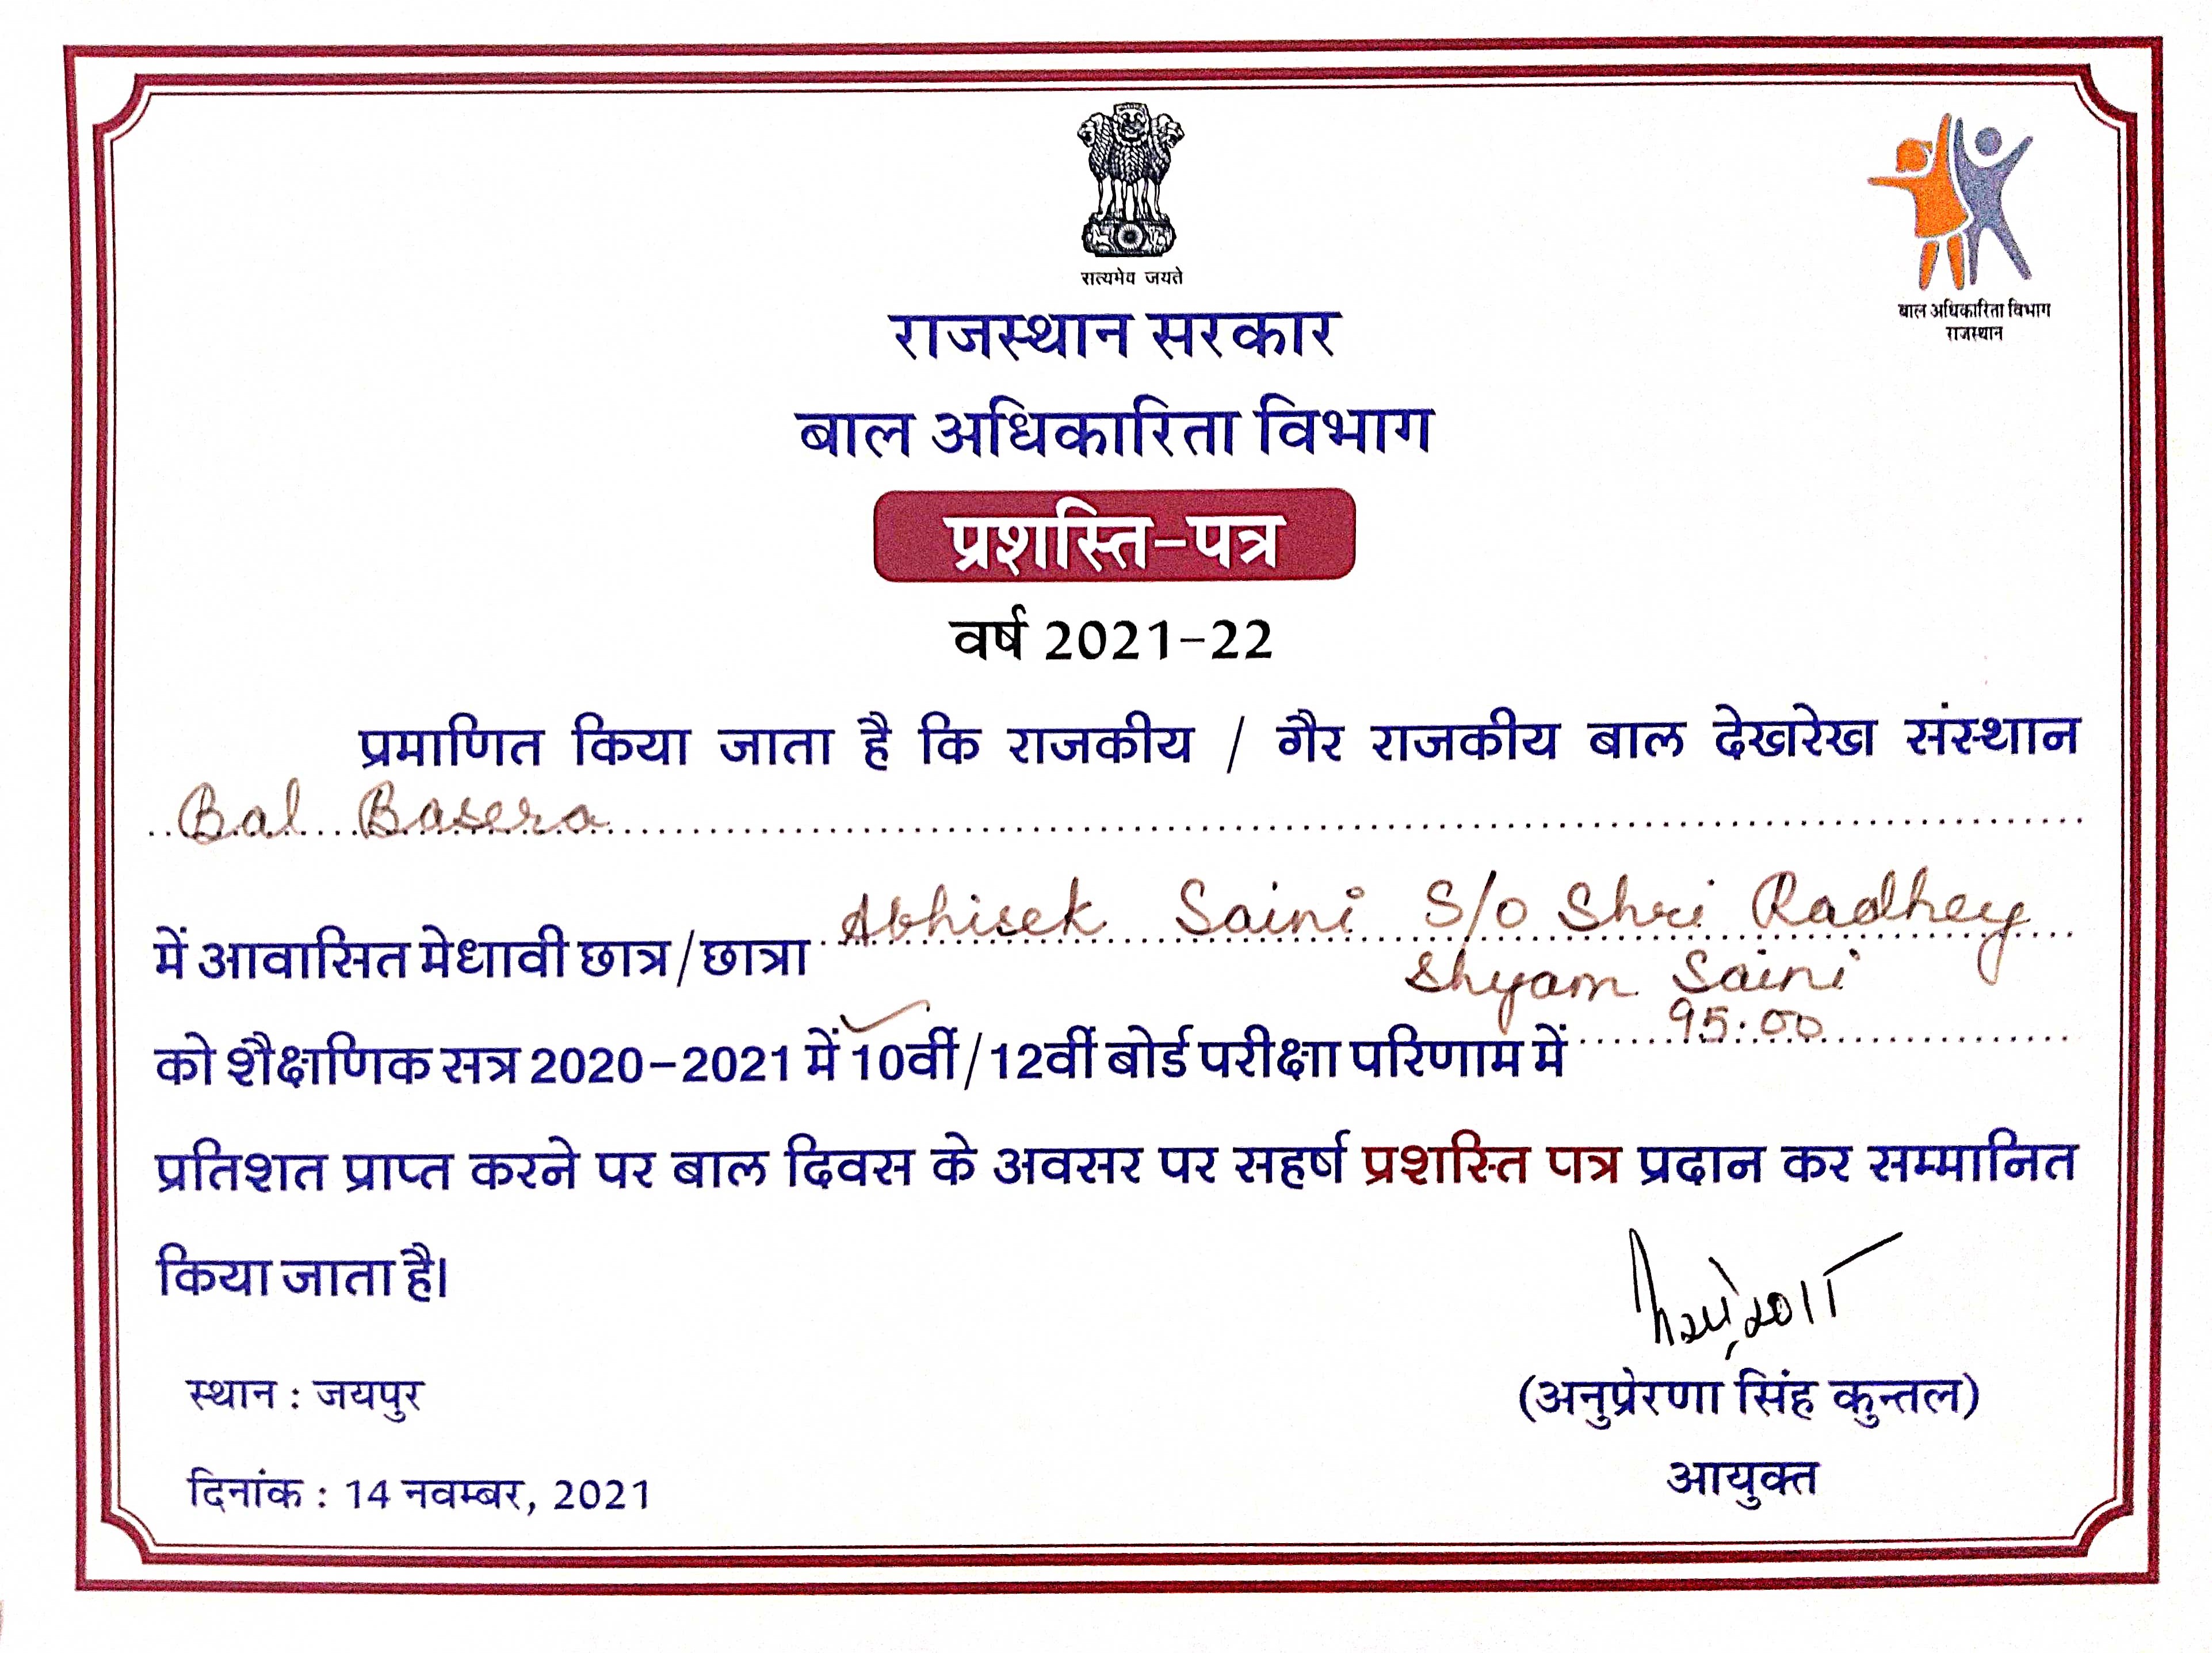 सत्यमेव जयते
बाल अधिकारिता विभाग
राजस्थान
राजस्थान सरकार
बाल अधिकारिता विभाग
प्रशस्ति-पत्र
वर्ष 2021-22
प्रमाणित किया जाता है कि राजकीय / गैर राजकीय बाल देखरेख संस्थान
Bal Basera
में आवासित मेधावी छात्र/छात्रा Abhisek Saini S/o Shri Radhey
Shyam Saini
को शैक्षणिक सत्र 2020-2021 में 10वीं/12वीं बोर्ड परीक्षा परिणाम में 95.00
प्रतिशत प्राप्त करने पर बाल दिवस के अवसर पर सहर्ष प्रशस्ति पत्र प्रदान कर सम्मानित
किया जाता है।
स्थान : जयपुर
(अनुप्रेरणा सिंह कुन्तल)
आयुक्त
दिनांक : 14 नवम्बर, 2021